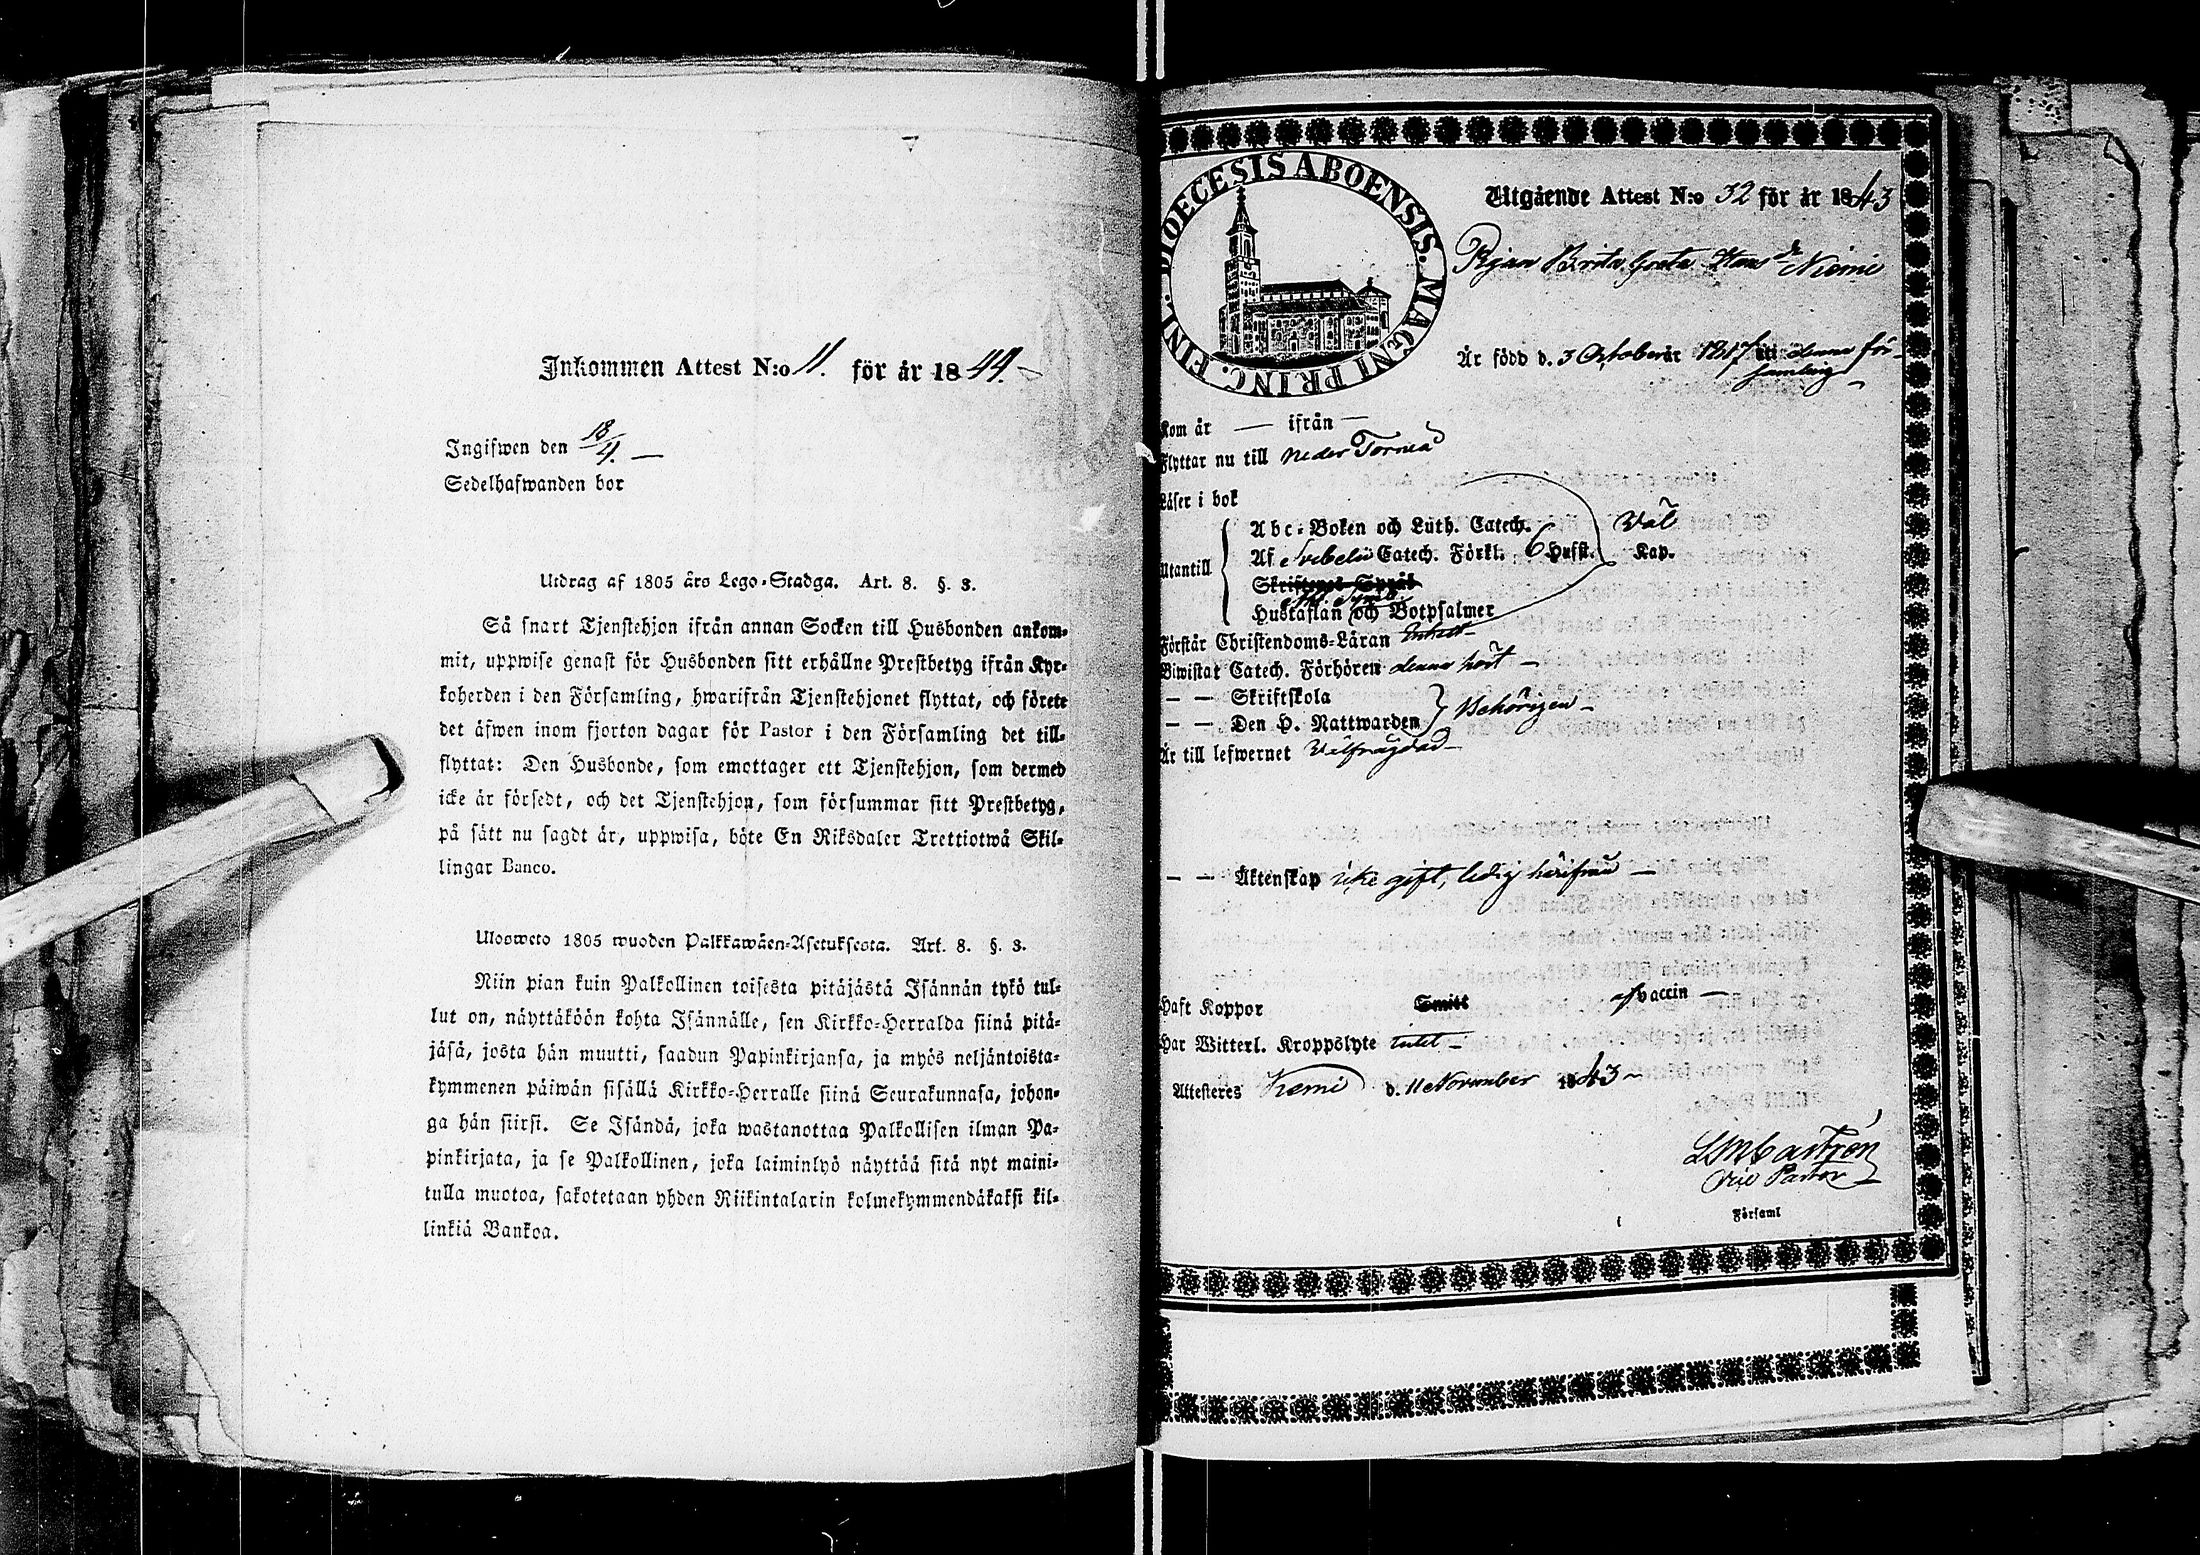 Inkommen Attest N:o 11. för år 1844.
Ingifwen den 18/4. —
Sedelhafwanden bor
Utdrag af 1805 års Lego-Stadga. Art. 8. §. 3.
Så snart Tjenstehjon ifrån annan Socken till Husbonden ankom-
mit, uppwise genast för Husbonden sitt erhållne Prestbetyg ifrån Kyr-
koherden i den Församling, hwarifrån Tjenstehjonet flyttat, och förete
det äfwen inom fjorton dagar för Pastor i den Församling det till-
flyttat: Den Husbonde, som emottager ett Tjenstehjon, som dermed
icke är försedt, och det Tjenstehjon, som försummar sitt Prestbetyg,
på sätt nu sagdt är, uppwisa, böte En Riksdaler Trettiotwå Skil-
lingar Banco.
Ulosweto 1805 wuoden Palkkawäen-Asetuksesta. Art. 8. §. 3.
Niin pian kuin Palkollinen toisesta pitäjästä Isännän tykö tul-
lut on, näyttäköön kohta Isännälle, sen Kirkko-Herralda siinä pitä-
jäsä, josta hän muutti, saadun Papinkirjansa, ja myös neljäntoista-
kymmenen päiwän sisällä Kirkko-Herralle siinä Seurakunnasa, johon-
ga hän siirsi. Se Isändä, joka wastanottaa Palkollisen ilman Pa-
pinkirjata, ja se Palkollinen, joka laiminlyö näyttää sitä nyt maini-
tulla muotoa, sakotetaan yhden Riikintalarin kolmekymmendäkaksi kil-
linkiä Bankoa.
DIOECESIS ABOENSIS. MAGNI PRINC. FINL.
Utgående Attest N:o 32 för år 1843
Pigan Brita Greta Hans dr Niemi
Är född d. 3 October år 1817 uti denna för-
samling
Kom år — ifrån —
Flyttar nu till Neder Torneå
Läser i bok
Abc-Boken och Luth. Catech. Väl
Utantill Af Svebelii Catech. Förkl. 6 Hufst. Kap.
Skriftenes Språk
Ath. Symb.
Hustaflan och Botpsalmer
Förstår Christendoms-Läran Enkelt
Biwistat Catech. Förhören denna höst —
— — Skriftskola
— — Den H. Nattwarden Behörigen —
Är till lefwernet Välfrägdad —
— — Äktenskap icke gift, ledig härifrån —
Haft Koppor Smitt af vaccin —
Har Witterl. Kroppslyte intet —
Attesteres Kemi d. 11 November 1843 —
L M Castrén
Vice Pastor
i Församl